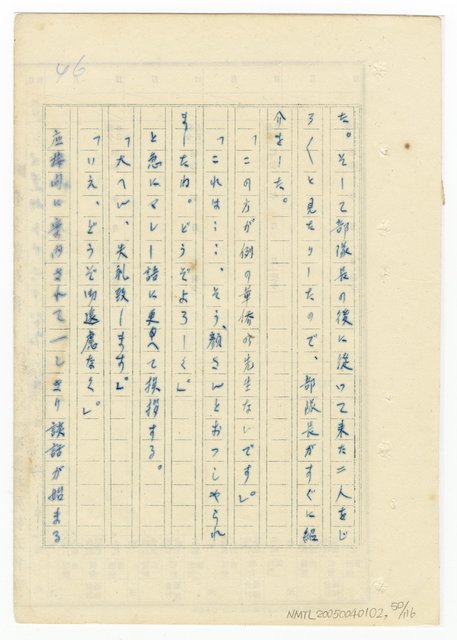 46
た。そして部隊長の後に従いて来た二人をじ
ろ〱と見たりしたので、部隊長がすぐに紹
介をした。
「この方が例の華僑の先生ないです」。
「これは……、そう、顔さんとおつしやられ
ました内。どうぞよろしく」
と急にマレー語に更へて挨拶する。
「大へん、失礼致します」。
「いえ、どうぞ御遠慮なく」。
応接間に案内されて一しきり談話が始まる
NMTL20050040102, 50/116